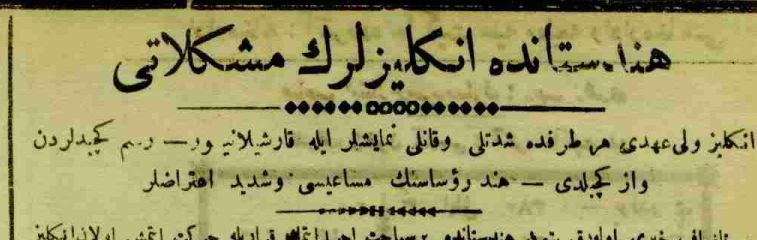 هندستانده انكليزلرك مشكلاتى
انكليز ولى عهدى هر طرفده شدتلى وقانلى نمايشلر ايله قارشيلانيور — رسم كچيدلردن
واز كچيلدى — هند رؤساسنك مساعيسى وشديد اعتراضلر